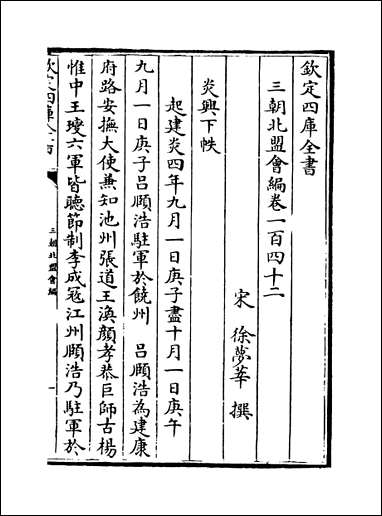 欽定四庫全書
三朝北盟會編卷一百四十二
宋 徐夢莘 撰
炎興下帙
起建炎四年九月一日庚子盡十月一日庚午
九月一日庚子呂頤浩駐軍於饒州 呂頤浩為建康
府路安撫大使兼知池州張道王渙顏孝恭巨師古楊
惟中王𤫉六軍皆聽節制李成冦江州頤浩乃駐軍於
欽定四庫全書
三朝北盟會編
一